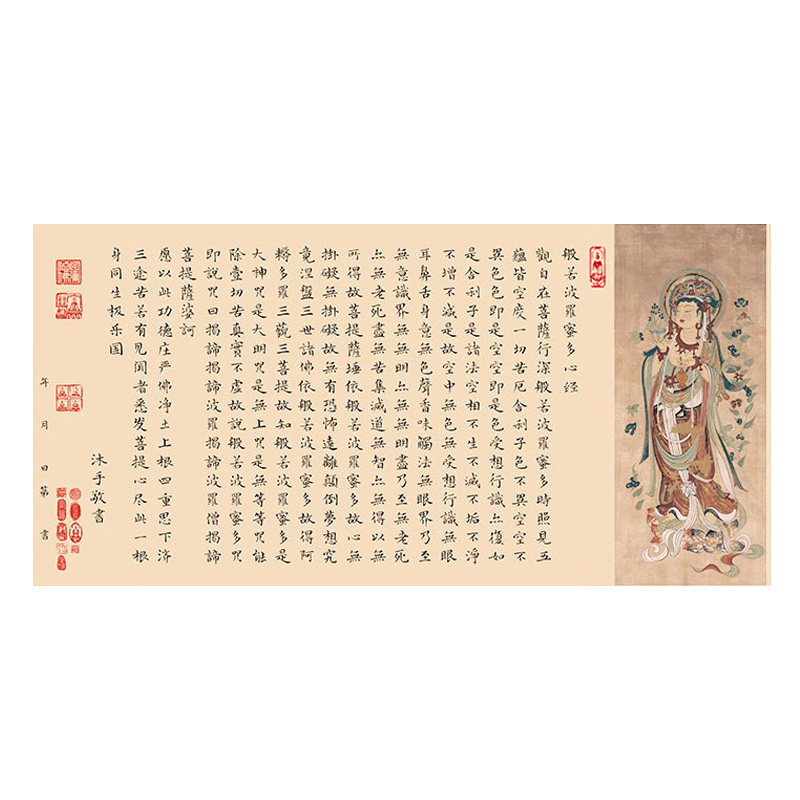 般若波羅蜜多心經
觀自在菩薩行深般若波羅蜜多時照見五
蘊皆空度一切苦厄舍利子色不異空空不
異色色即是空空即是色受想行識亦復如
是舍利子是諸法空相不生不滅不垢不淨
不增不減是故空中無色無受想行識無眼
耳鼻舌身意無色聲香味觸法無眼界乃至
無意識界無無明亦無無明盡乃至無老死
亦無老死盡無苦集滅道無智亦無得以無
所得故菩提薩埵依般若波羅蜜多故心無
掛礙無掛礙故無有恐怖遠離顛倒夢想究
竟涅盤三世諸佛依般若波羅蜜多故得阿
耨多羅三觀三菩提故知般若波羅蜜多是
大神咒是大明咒是無上咒是無等等咒能
除壹切苦真實不虛故說般若波羅蜜多咒
即說咒曰揭諦揭諦波羅揭諦波羅僧揭諦
菩提薩婆訶
愿以此功德庄严佛净土上根四重思下济
三途苦若有见闻者悉发菩提心尽此一根
身同生极乐国
沐手敬書
年 月 日第 書